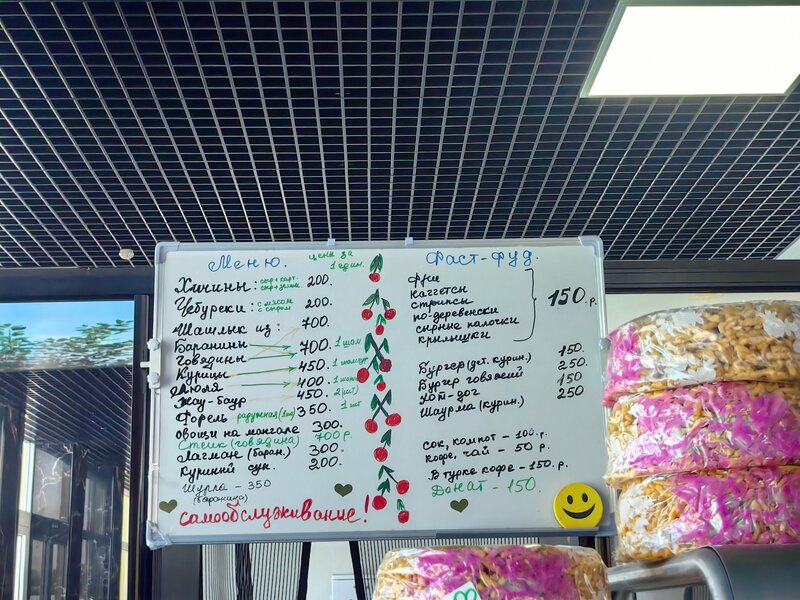 Меню.
цена за
1 един.
Хичины: сыр+карт. 200.
сыр+зелень
Чебуреки: с мясом 200.
с сыром
Шашлык из: 700.
Баранины 700. 1 шам
Говядины
Курицы 450. 1 шампур
Люля 400. 1 шам
Жау-баур 450. 2 (шт)
Форель радужная 350. 1 шт
овощи на мангале 300.
Стейк (говядина) 700 р.
Лагман (баран.) 300.
Куриный суп. 200.
Шурпа - 350
(баранина)
самообслуживание!
Фаст-фуд.
Фри
Наггетсы
стрипсы 150. р.
по-деревенски
сырные палочки
крылышки
Бургер (дет. курин.) 150.
Бургер говяжий 250.
Хот-дог 150
Шаурма (курин.) 250
Сок, компот - 100. р.
Кофе, чай - 50 р.
В турке кофе - 150. р.
Донат - 150.